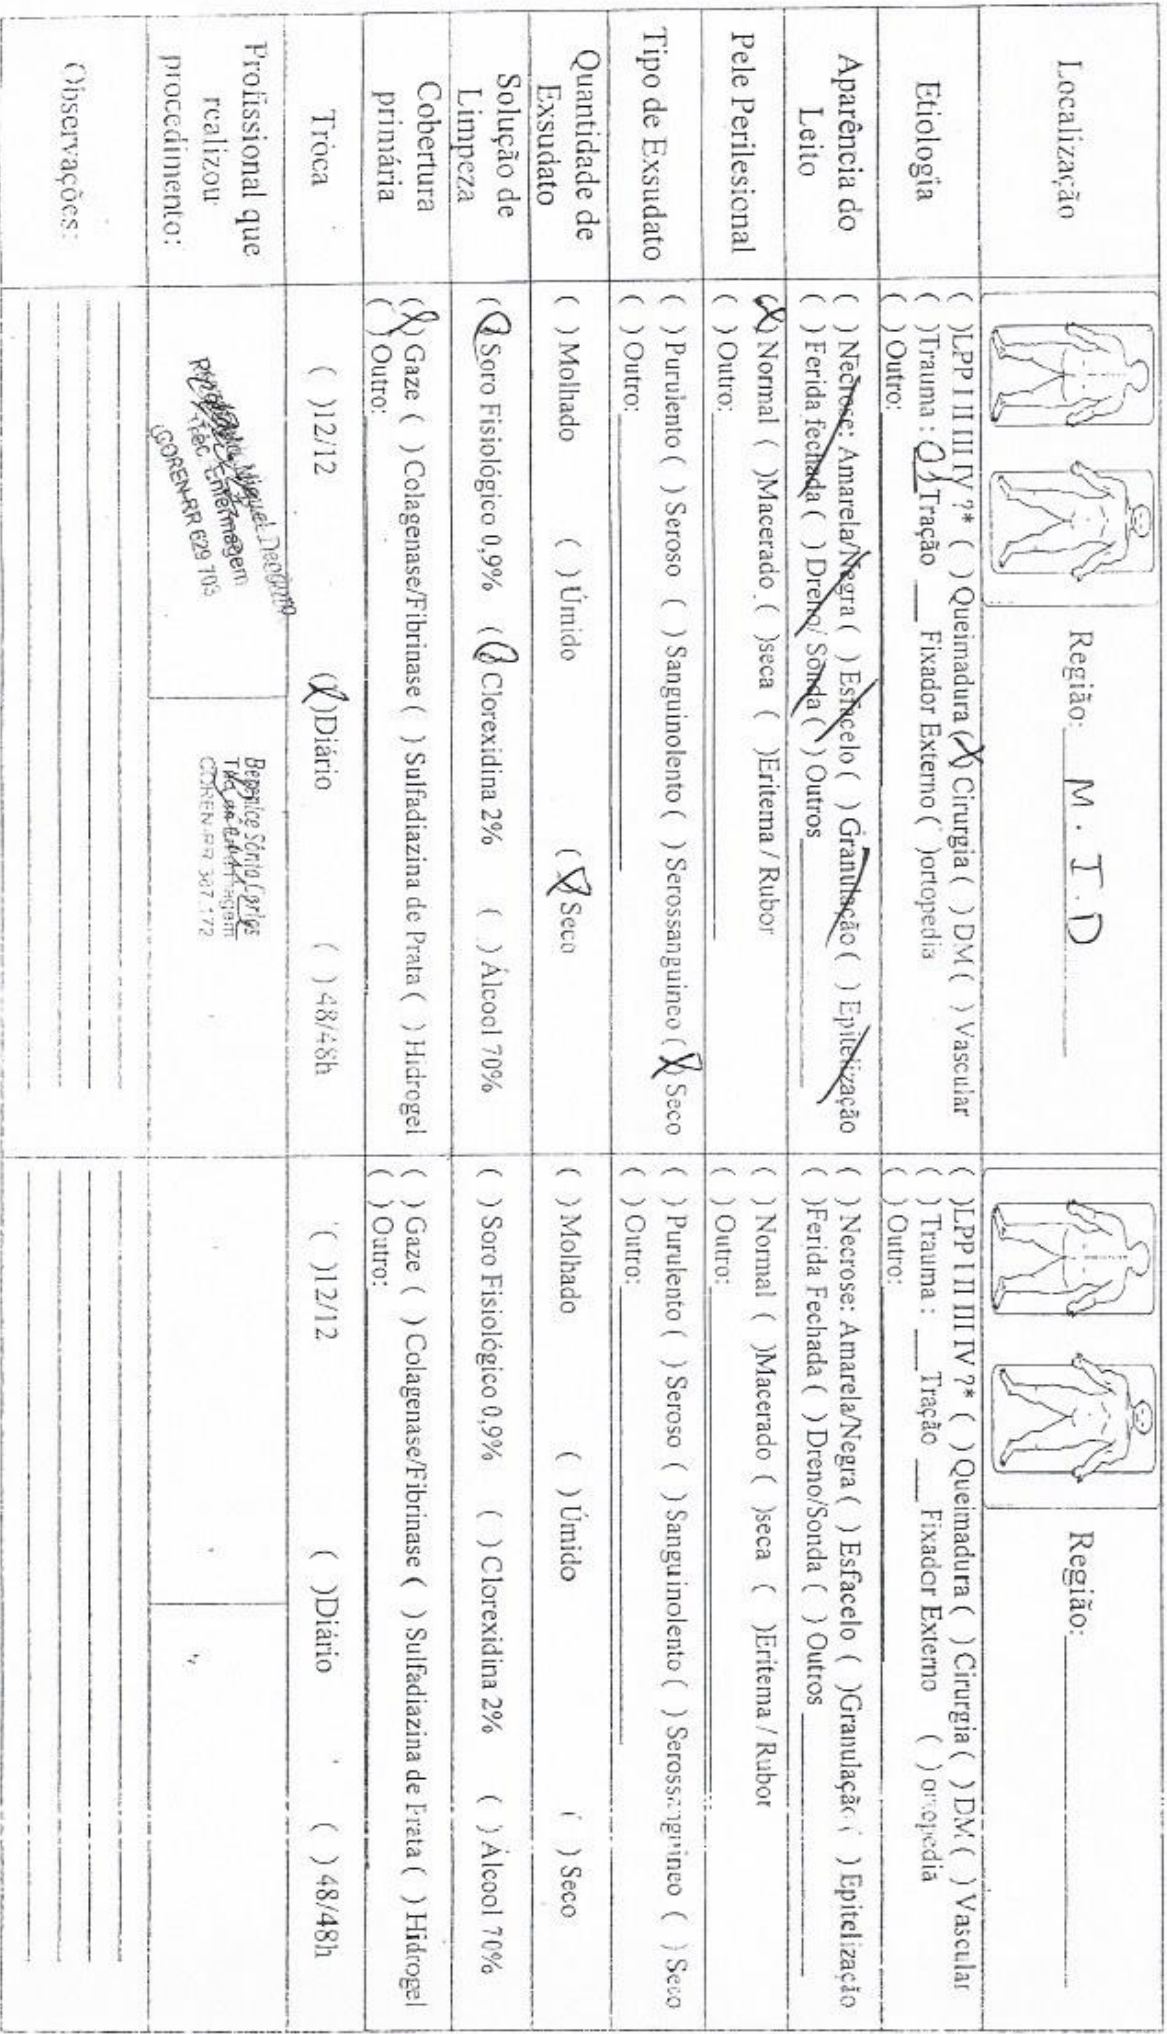 Localização
Região: M.I.D
Região:
Etiologia
( )LPP I II III IV ?* ( )Queimadura (X)Cirurgia ( ) DM ( ) Vascular
( )Trauma : 01 Tração ___ Fixador Externo ( )ortopedia
( )Outro:
( )LPP I II III IV ?* ( )Queimadura ( )Cirurgia ( ) DM ( ) Vascular
( )Trauma : ___Tração ___ Fixador Externo ( )ortopedia
( )Outro:
Aparência do
Leito
( ) Necrose: Amarela/Negra ( ) Esfacelo ( ) Granulação ( ) Epitelização
( ) Ferida fechada ( ) Dreno/ Sonda ( ) Outros
( ) Necrose: Amarela/Negra ( ) Esfacelo ( )Granulação ( ) Epitelização
( )Ferida Fechada ( ) Dreno/Sonda ( ) Outros
Pele Perilesional
(X) Normal ( )Macerado ( )seca ( )Eritema / Rubor
( ) Outro:
( ) Normal ( )Macerado ( )seca ( )Eritema / Rubor
( ) Outro:
Tipo de Exsudato
( ) Purulento ( ) Seroso ( ) Sanguinolento ( ) Serossanguineo (X) Seco
( ) Outro:
( ) Purulento ( ) Seroso ( ) Sanguinolento ( ) Serossanguineo ( ) Seco
( ) Outro:
Quantidade de
Exsudato
( ) Molhado ( ) Úmido (X) Seco
( ) Molhado ( ) Úmido ( ) Seco
Solução de
Limpeza
( ) Soro Fisiológico 0,9% ( ) Clorexidina 2% ( ) Álcool 70%
( ) Soro Fisiológico 0,9% ( ) Clorexidina 2% ( ) Álcool 70%
Cobertura
primária
(X) Gaze ( ) Colagenase/Fibrinase ( ) Sulfadiazina de Prata ( ) Hidrogel
( ) Outro:
( ) Gaze ( ) Colagenase/Fibrinase ( ) Sulfadiazina de Prata ( ) Hidrogel
( ) Outro:
Troca
( )12/12 (X)Diário ( ) 48/48h
( )12/12 ( )Diário ( ) 48/48h
Profissional que
realizou
procedimento:
Miguel
Tec. Enfermagem
COREN-RR 629 703
Berenice Sônia Carlos
COREN-RR 367.172
Observações: